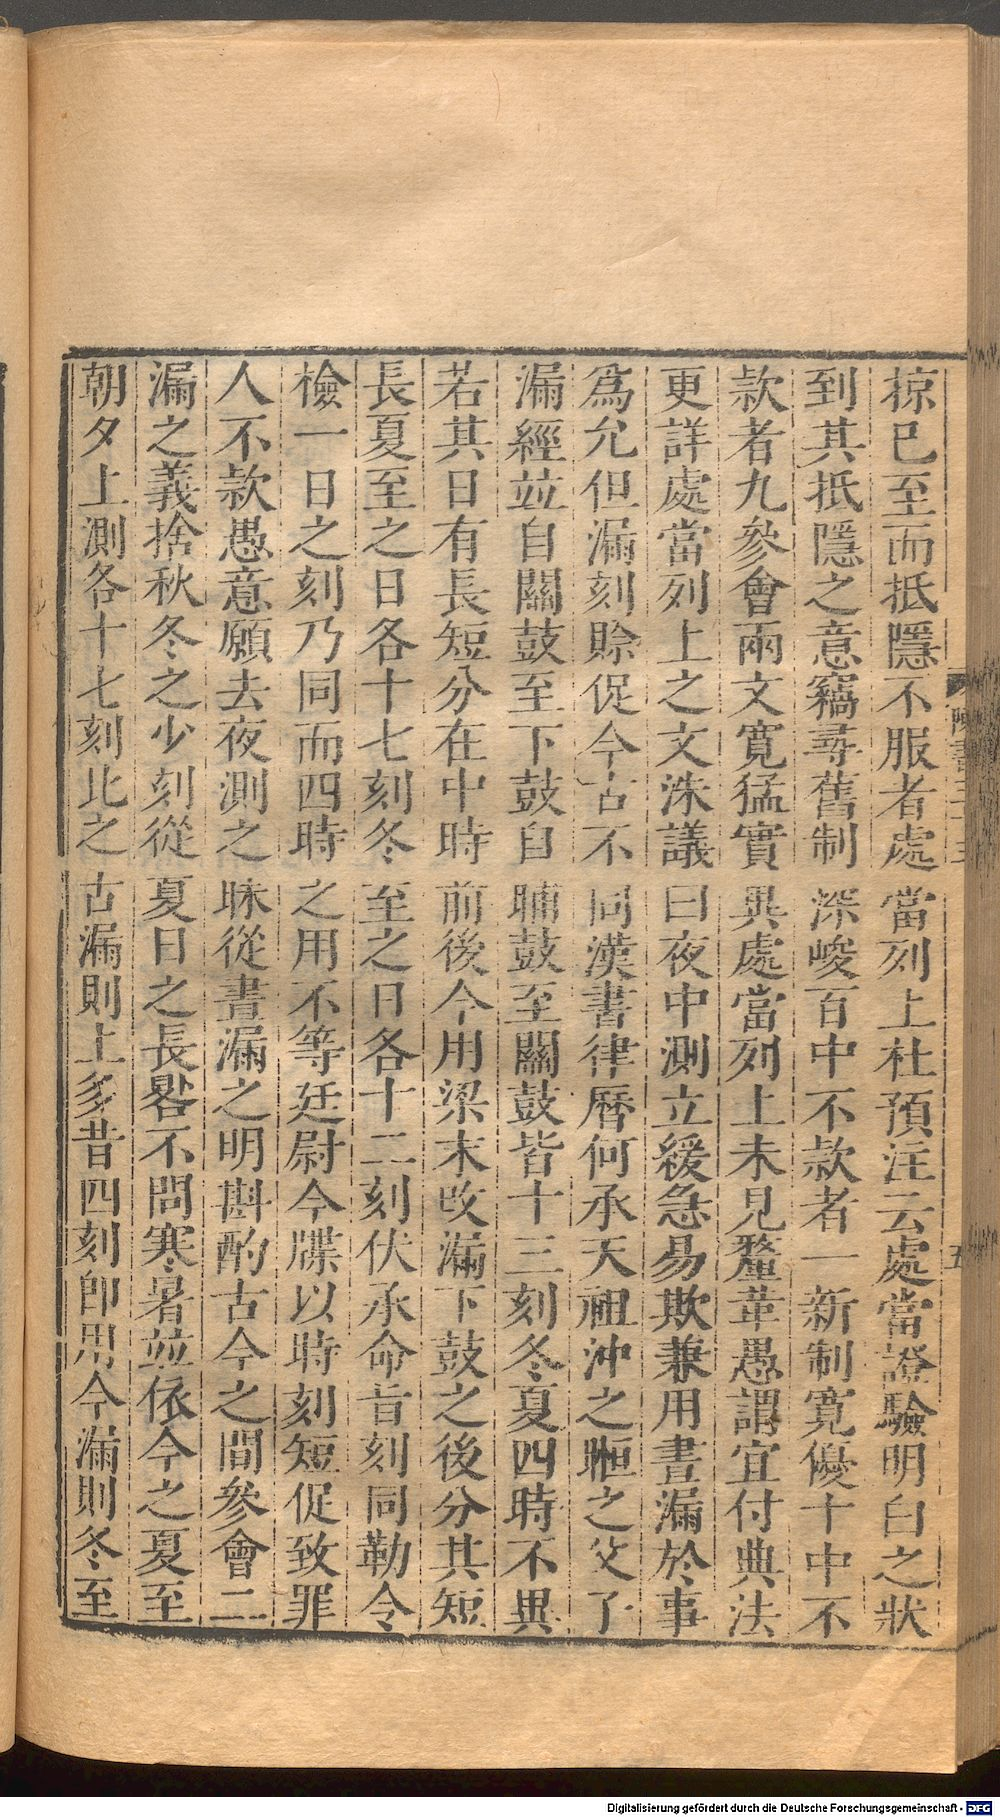 掠已至而抵隱不服者處當列上杜預注云處當證驗明白之狀
到其抵隱之意竊尋舊制深峻百中不款者一新制寬優十中不
款者九參會兩文寛猛實異處當列上未見釐革愚謂宜付典法
更詳處當列上之文洙議曰夜中測立緩急易欺兼用晝漏於事
爲允但漏刻賒促今古不同漢書律曆何承天祖沖之暅之父子
漏經竝自關鼓至下鼓自晡鼓至關鼓皆十三刻冬夏四時不異
若其日有長短分在中時前後今用梁末改漏下鼓之後分其短
長夏至之日各十七刻冬至之日各十二刻伏承命旨刻同勒令
檢一日之刻乃同而四時之用不等廷尉今牒以時刻短促致罪
人不款愚意願去夜測之昧從晝漏之明斟酌古今之間參會二
漏之義捨秋冬之少刻從夏日之長晷不問寒暑竝依今之夏至
朝夕上測各十七刻比之古漏則上多昔四刻即用今漏則冬至
陳書三十三
五
Digitalisierung gefördert durch die Deutsche Forschungsgemeinschaft - DFG